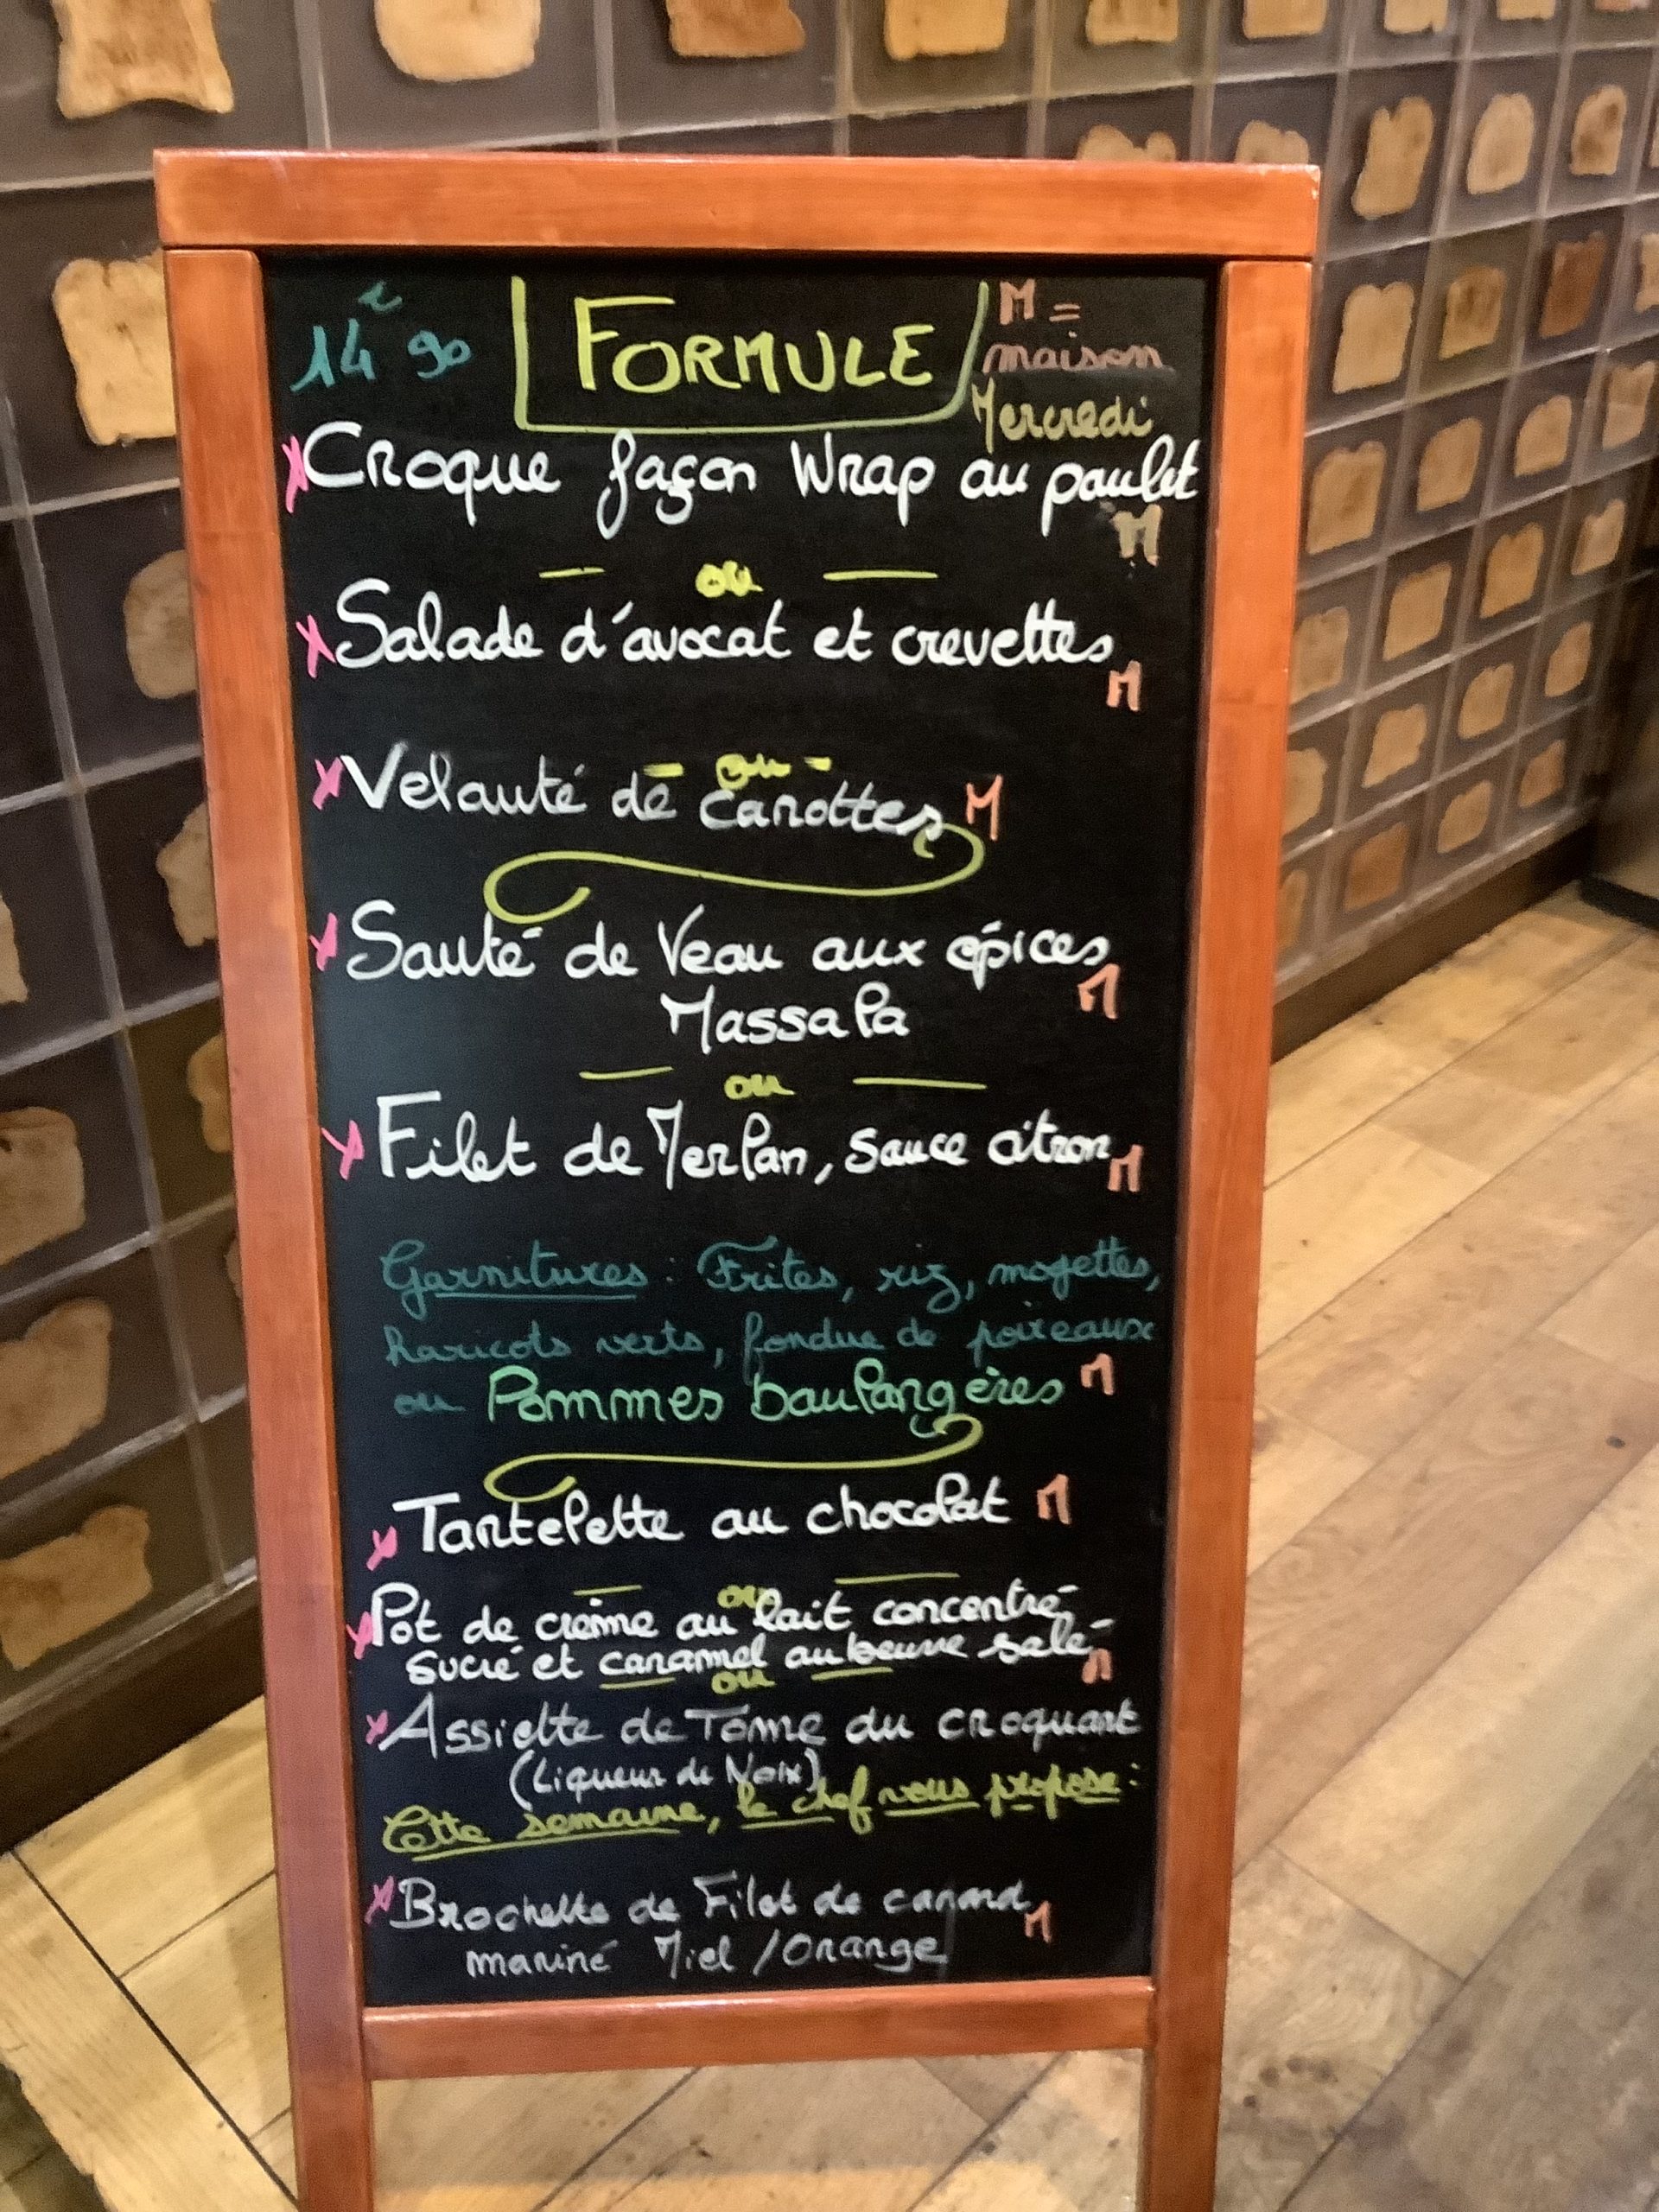 14€90 FORMULE M =
maison
Mercredi
x Croque façon Wrap au poulet
M
— ou —
x Salade d'avocat et crevettes
M
- ou -
x Velouté de Carottes M
x Sauté de Veau aux épices
Massala M
— ou —
x Filet de Merlan, sauce citron M
Garnitures : Frites, riz, mogettes,
haricots verts, fondue de poireaux
ou Pommes boulangères M
x Tartelette au chocolat M
— ou —
x Pot de crème au lait concentré
sucré et caramel au beurre salé M
— ou —
x Assiette de Tome du croquant
(Liqueur de Noix)
Cette semaine, le chef vous propose :
x Brochette de Filet de canard M
mariné Miel / Orange